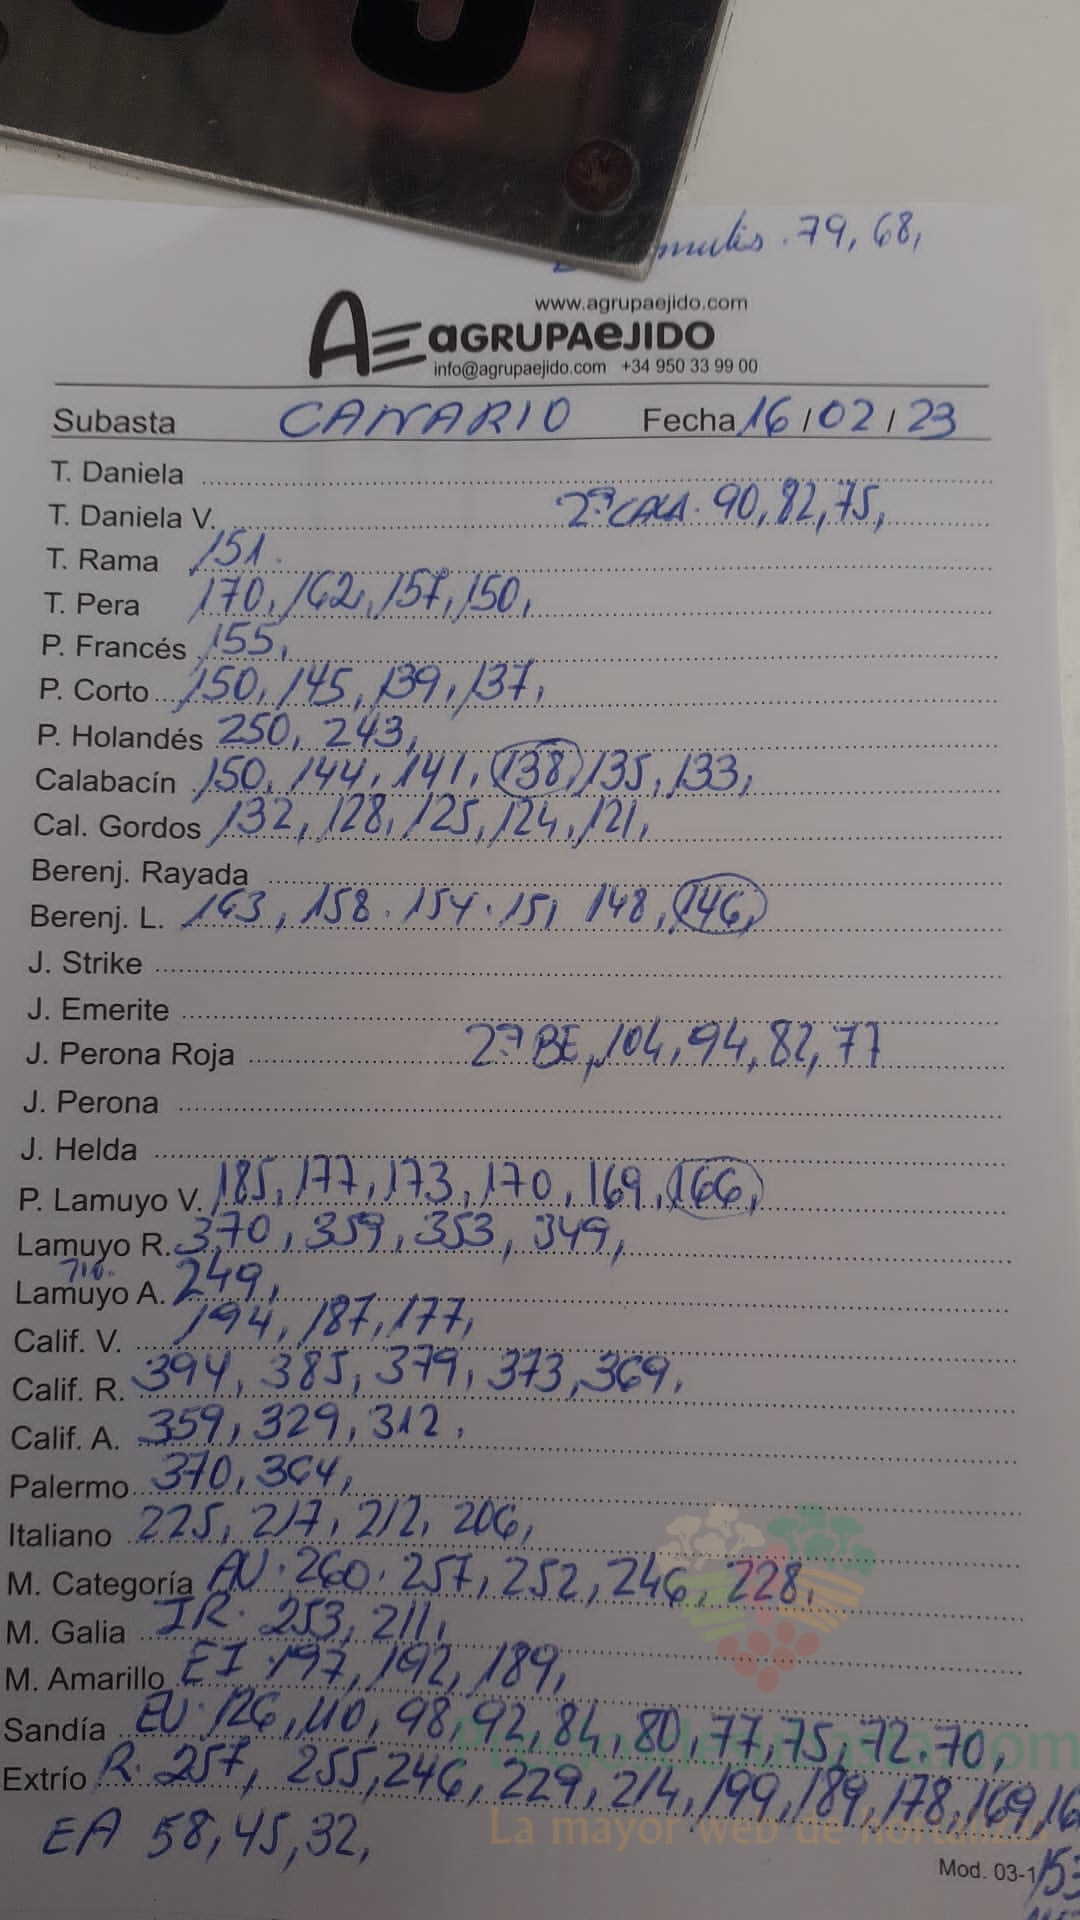 mulis. 79, 68,
www.agrupaejido.com
AE aGRUPAeJIDO
info@agrupaejido.com +34 950 33 99 00
Subasta CANARIO Fecha 16/02/23
T. Daniela
T. Daniela V. 2ª CALA. 90, 82, 75,
T. Rama 151.
T. Pera 170, 162, 157, 150,
P. Francés 155,
P. Corto 150, 145, 139, 137,
P. Holandés 250, 243,
Calabacín 150, 144, 141, 138, 135, 133,
Cal. Gordos 132, 128, 125, 124, 121,
Berenj. Rayada
Berenj. L. 163, 158. 154. 151 148, 146,
J. Strike
J. Emerite
J. Perona Roja 2ª BE, 104, 94, 82, 77
J. Perona
J. Helda
P. Lamuyo V. 185, 177, 173, 170, 169, 166,
Lamuyo R. 370, 359, 353, 349,
Lamuyo A. 249,
Calif. V. 194, 187, 177,
Calif. R. 394, 385, 379, 373, 369,
Calif. A. 359, 329, 312,
Palermo 370, 364,
Italiano 225, 217, 212, 206,
M. Categoría AU. 260. 257, 252, 246, 228,
M. Galia IR. 253, 211,
M. Amarillo EI. 197, 192, 189,
Sandía EU. 126, 110, 98, 92, 84, 80, 77, 75, 72. 70,
Extrío R. 257, 255, 246, 229, 214, 199, 189, 178, 169, 16
EA 58, 45, 32,
La mayor web de hortalizas
Mod. 03-1 153